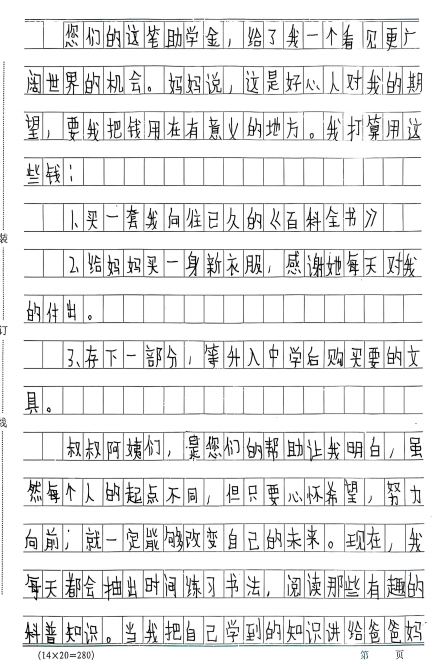 您们的这笔助学金，给了我一个看见更广
阔世界的机会。妈妈说，这是好心人对我的期
望，要我把钱用在有意义的地方。我打算用这
些钱：
1、买一套我向往已久的《百科全书》
2、给妈妈买一身新衣服，感谢她每天对我
的付出。
3、存下一部分，等升入中学后购买要的文
具。
叔叔阿姨们，是您们的帮助让我明白，虽
然每个人的起点不同，但只要心怀希望，努力
向前；就一定能够改变自己的未来。现在，我
每天都会抽出时间练习书法，阅读那些有趣的
科普知识。当我把自己学到的知识讲给爸爸妈
装
订
线
(14×20=280)
第 页